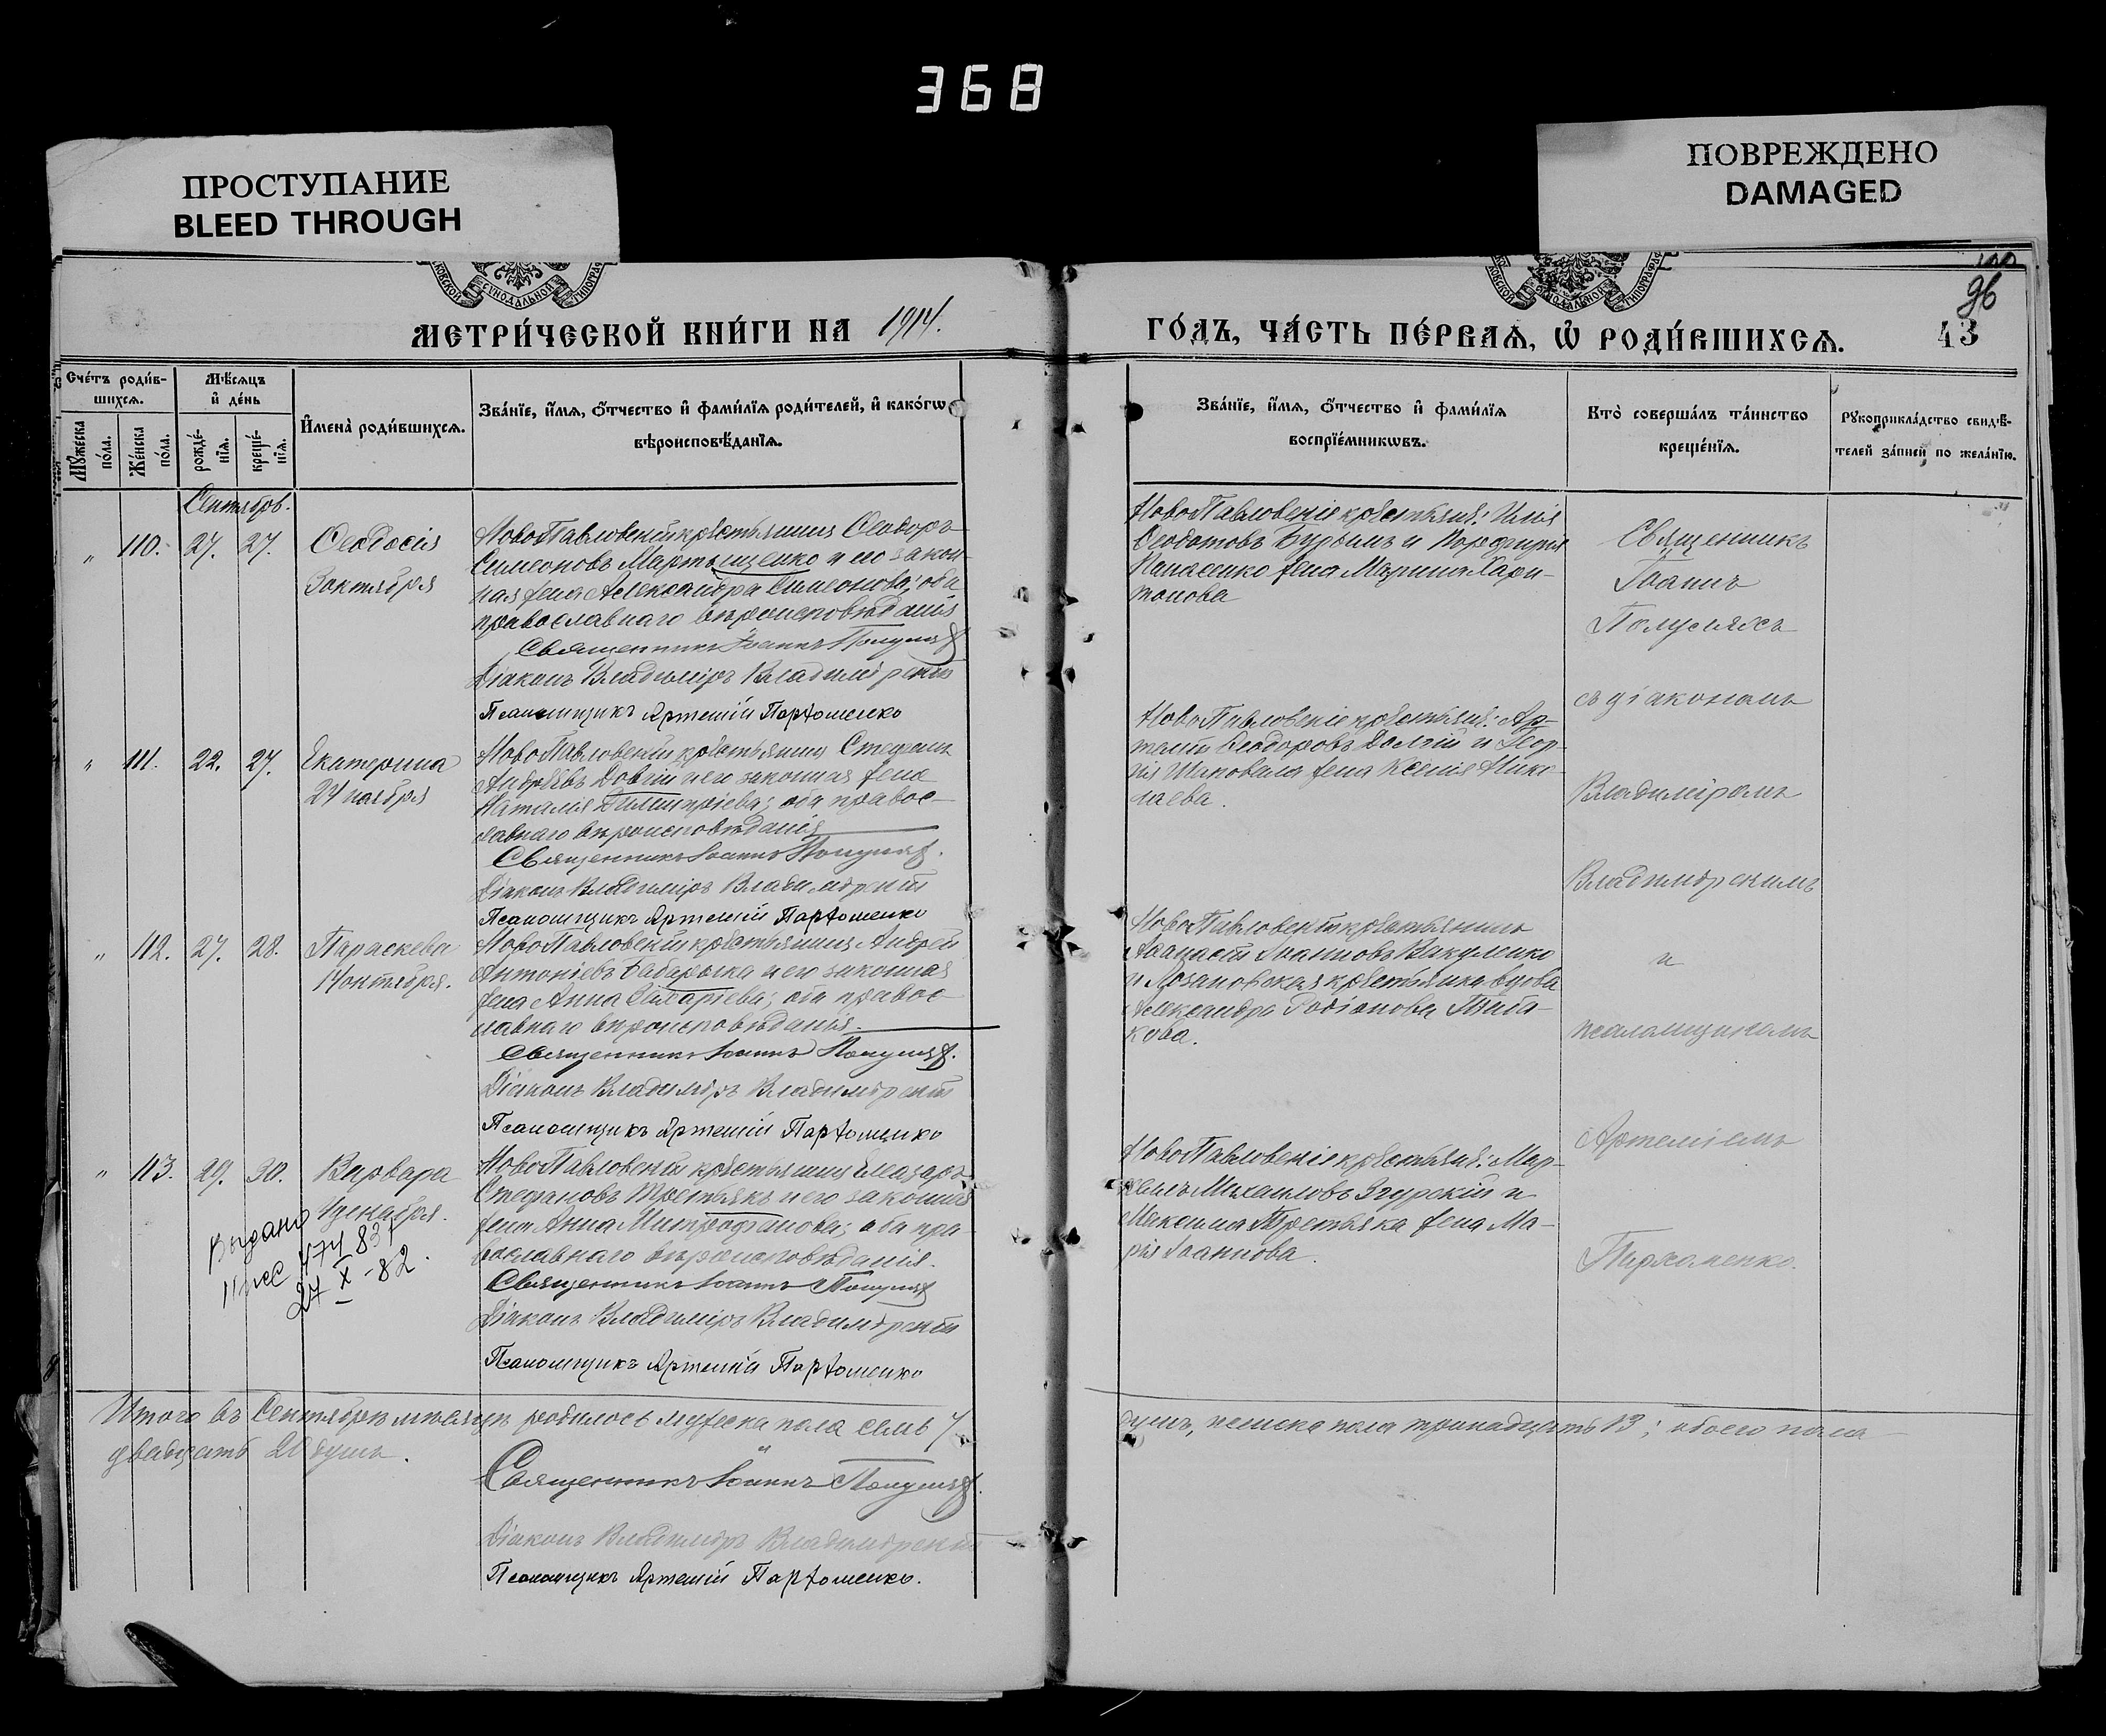 368
ПРОСТУПАНИЕ
BLEED THROUGH
ПОВРЕЖДЕНО
DAMAGED
МЕТРИ́ЧЕСКОЙ КНИ́ГИ НА 1914.
ГО́ДЪ, ЧА́СТЬ ПЕ́РВАѦ, Ѡ҆ РОДИ́ВШИХСѦ.
96
43
Сче́тъ роди́в-
шихсѧ.
Мꙋ́жеска по́ла.
Же́нска по́ла.
Мѣ́сѧцъ
и҆ де́нь
рожде́-нїѧ.
креще́-нїѧ.
И҆мена̀ роди́вшихсѧ.
Зва́нїе, и҆́мѧ, ѻ҆́тчество и҆ фами́лїѧ роди́телей, и҆ како́гѡ
вѣроисповѣ́данїѧ.
Зва́нїе, и҆́мѧ, ѻ҆́тчество и҆ фами́лїѧ
воспрїе́мникѡвъ.
Кто̀ соверша́лъ та́инство
креще́нїѧ.
Рꙋкоприкла́дство свидѣ́-
телей за́писи по жела́нїю.
Сентябрь.
" 110. 27. 27. Ѳеодосія
3 октября
НовоПавловскій крестьянинъ Ѳеодоръ
Симеоновъ Мартыщенко и его закон-
ная жена Александра Симеонова; оба
православнаго вѣроисповѣданія
Священникъ Іоаннъ
Діаконъ Владиміръ Владимірскій
Псаломщикъ Артемій Пархоменко
НовоПавловскіе крестьяне: Илія
Ѳеодотовъ и Порфирія
Панасенко жена Марина Хари-
тонова
Священникъ
Іоаннъ
съ діакономъ
Владиміромъ
Владимірскимъ
и
псаломщикомъ
Артеміемъ
Пархоменко.
" 111. 22. 27. Екатерина
24 ноября
НовоПавловскій крестьянинъ Стефанъ
Андреевъ Довгій и его законная жена
Наталія Димитріева; оба правос-
лавнаго вѣроисповѣданія
Священникъ Іоаннъ
Діаконъ Владиміръ Владимірскій
Псаломщикъ Артемій Пархоменко
НовоПавловскіе крестьяне: Ар-
темій Ѳеодоровъ Долгій и Геор-
гія Шаповала жена Ксенія Нико-
лаева.
" 112. 27. 28. Параскева
14 октября.
НовоПавловскій крестьянинъ Андрей
Антоніевъ и его законная
жена Анна Захаріева; оба правос-
лавнаго вѣроисповѣданія.
Священникъ Іоаннъ
Діаконъ Владиміръ Владимірскій
Псаломщикъ Артемій Пархоменко
НовоПавловскій крестьянинъ
Аѳанасій Іоанновъ Вакуленко
и крестьянка вдова
Александра Родіонова
кова.
" 113. 29. 30. Варвара
4 декабря.
Выдано
474 831
27 X -82.
НовоПавловскій крестьянинъ Елеазаръ
Стефановъ Третьякъ и его законная
жена Анна Митрофанова; оба пра-
вославнаго вѣроисповѣданія.
Священникъ Іоаннъ
Діаконъ Владиміръ Владимірскій
Псаломщикъ Артемій Пархоменко
НовоПавловскіе крестьяне: Мар-
Михаиловъ Згурскій и
Максима Третьяка жена Ма-
рія Іоаннова.
Итого въ Сентябрѣ мѣсяцѣ родилось мужеска пола семь 7 душъ, женска пола тринадцать 13; обоего пола
двадцать 20 душъ.
Священникъ Іоаннъ
Діаконъ Владиміръ Владимірскій
Псаломщикъ Артемій Пархоменко.